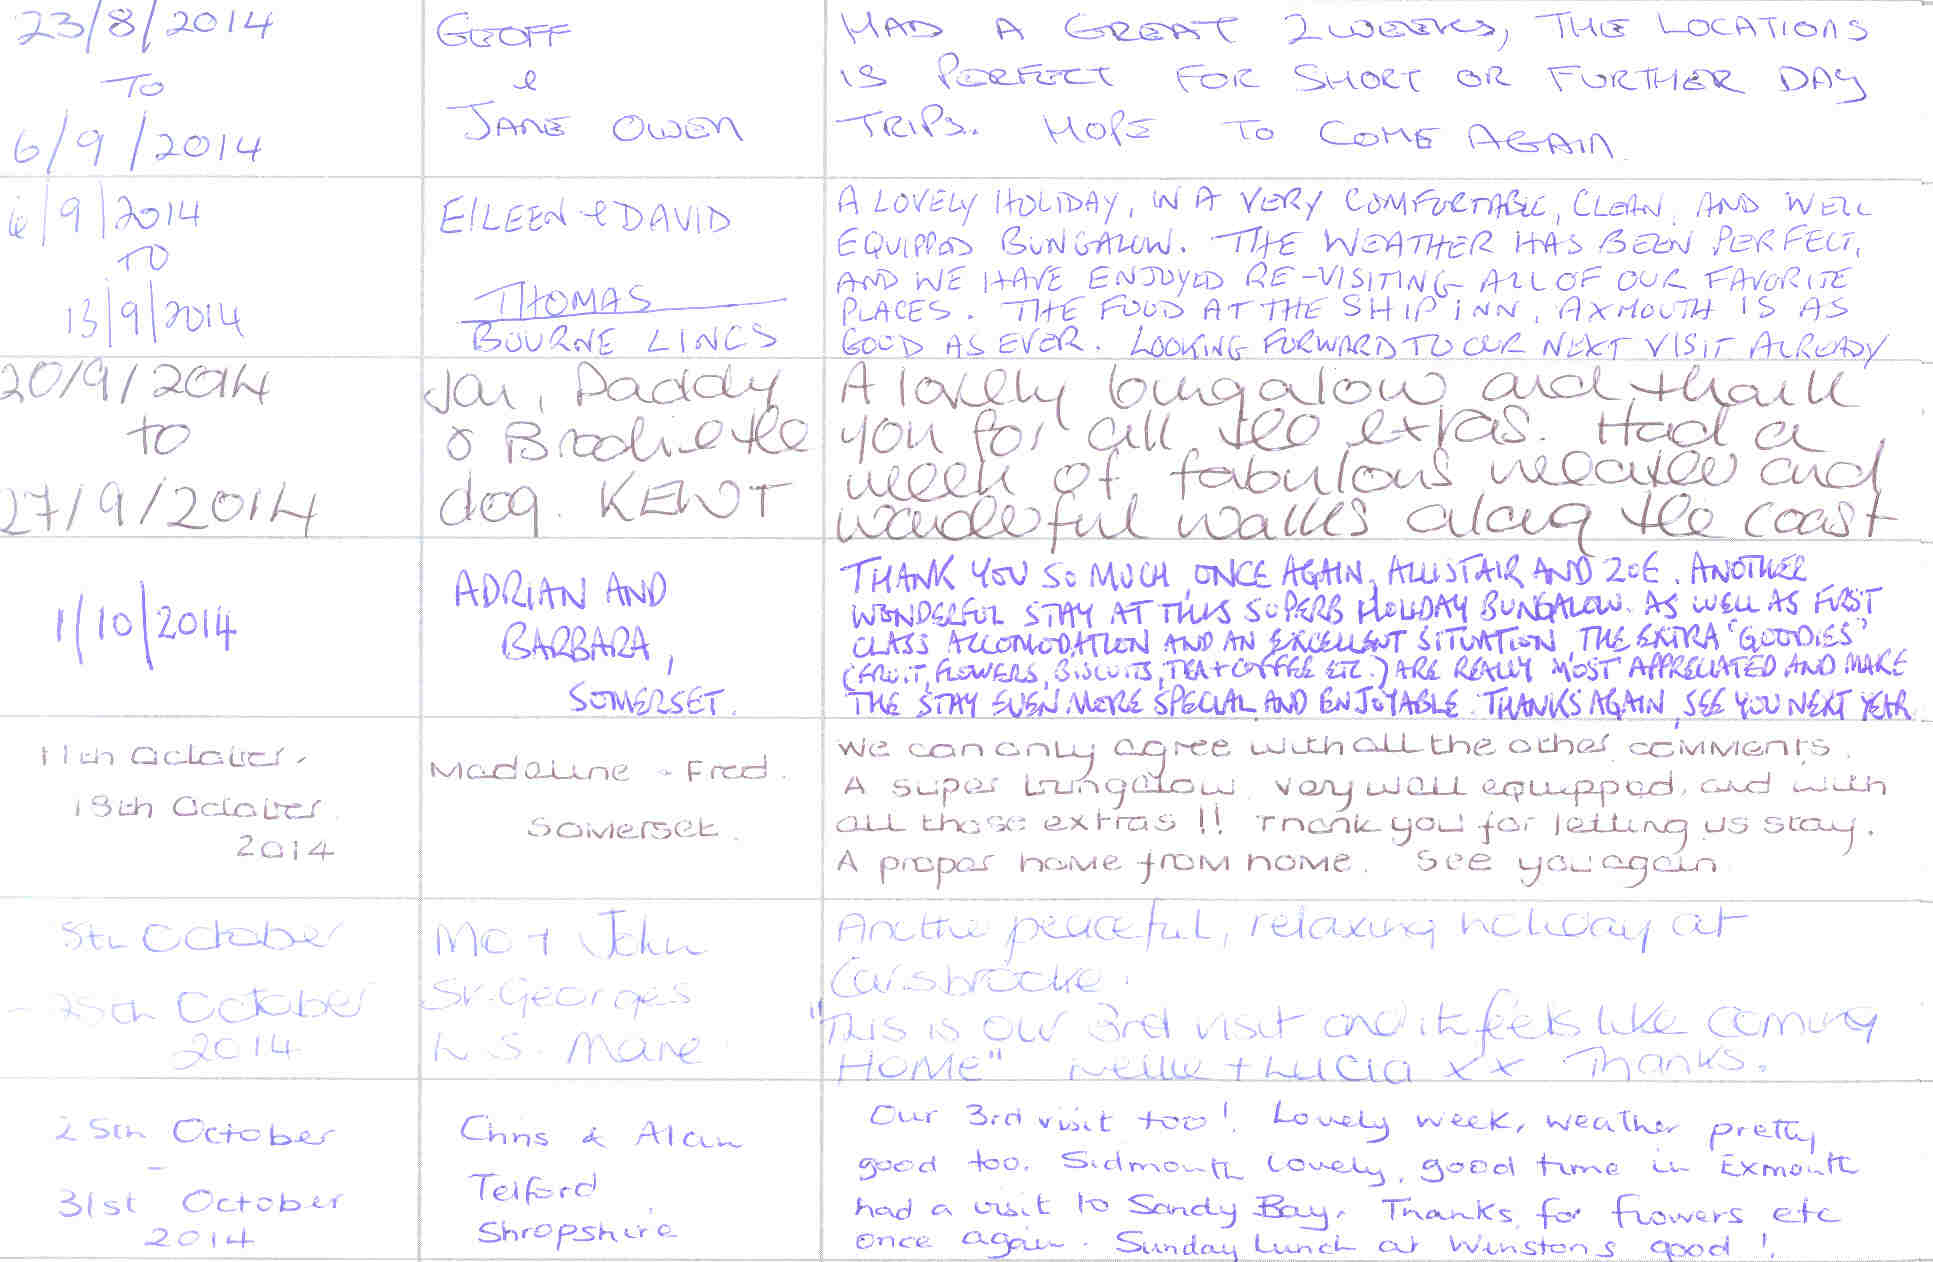 23/8/2014
TO
6/9/2014
GEOFF
&
JANE OWEN
HAD A GREAT 2 WEEKS, THE LOCATIONS
IS PERFECT FOR SHORT OR FURTHER DAY
TRIPS. HOPE TO COME AGAIN.
6/9/2014
TO
13/9/2014
EILEEN & DAVID
THOMAS
BOURNE LINCS
A LOVELY HOLIDAY, IN A VERY COMFORTABLE, CLEAN, AND WELL
EQUIPPED BUNGALOW. THE WEATHER HAS BEEN PERFECT,
AND WE HAVE ENJOYED RE-VISITING ALL OF OUR FAVORITE
PLACES. THE FOOD AT THE SHIP INN, AXMOUTH IS AS
GOOD AS EVER. LOOKING FORWARD TO OUR NEXT VISIT ALREADY
20/9/2014
to
27/9/2014
Jan, Paddy
& Brodie the
dog. KENT
A lovely bungalow and thank
you for all the extras. Had a
week of fabulous weather and
wonderful walks along the coast
1/10/2014
ADRIAN AND
BARBARA,
SOMERSET.
THANK YOU SO MUCH, ONCE AGAIN, ALLISTAIR AND ZOE. ANOTHER
WONDERFUL STAY AT THIS SUPERB HOLIDAY BUNGALOW. AS WELL AS FIRST
CLASS ACCOMODATION AND AN EXCELLENT SITUATION, THE EXTRA "GOODIES"
(FRUIT, FLOWERS, BISCUITS, TEA + COFFEE ETC.) ARE REALLY MOST APPRECIATED AND MAKE
THE STAY EVEN MORE SPECIAL AND ENJOYABLE. THANKS AGAIN, SEE YOU NEXT YEAR
11th October.
18th October.
2014
Madeline - Fred.
Somerset.
We can only agree with all the other comments.
A super bungalow, very well equipped, and with
all those extras!! Thank you for letting us stay.
A proper home from home. See you again
October
- 25th October
2014
Mo + John
St. Georges
W. S. Mare
Another peaceful, relaxing holiday at
Carisbrooke.
"This is our 3rd visit and it feels like coming
HOME" Nellie + Lucia xx Thanks.
25th October
-
31st October
2014
Chris & Alan
Telford
Shropshire
Our 3rd visit too! Lovely week, weather pretty
good too. Sidmouth lovely, good time in Exmouth
had a visit to Sandy Bay. Thanks for flowers etc
once again. Sunday Lunch at Winstons good!